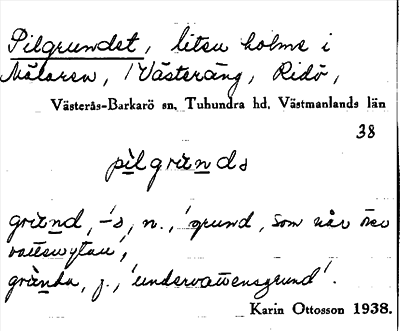 Pilgrundet, liten holme i
Mälaren, Västeräng, Ridö,
Västerås-Barkarö sn, Tuhundra hd, Västmanlands län
38
grund, -s, n., 'grund, som når över
vattenytan',
f., 'undervattensgrund'.
Karin Ottosson 1938.